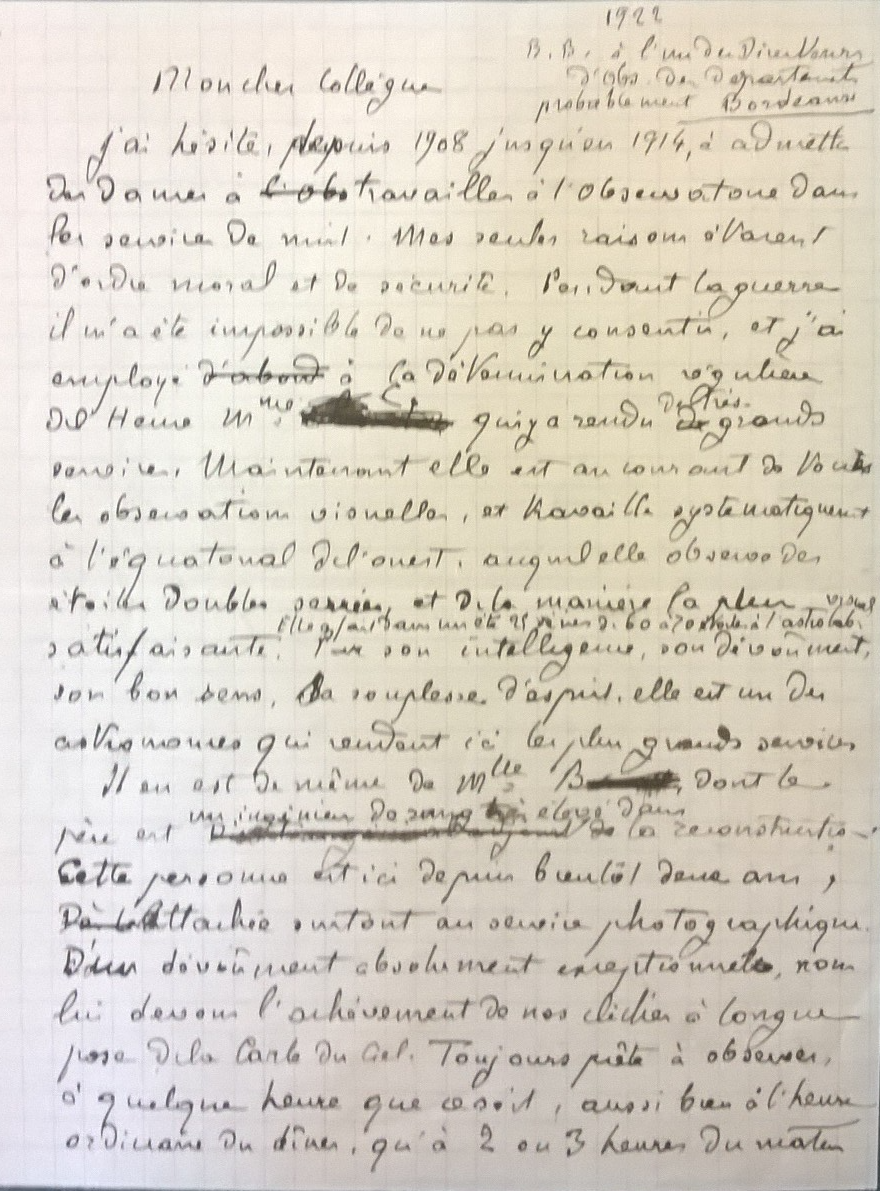 1922
B. B. à l'un des Directeurs
d'Obs. des Départements
probablement Bordeaux
Mon cher Collègue
J'ai hésité, depuis 1908 jusqu'en 1914, à admettre
des Dames à l'obs travailler à l'Observatoire dans
les services de nuit. Mes seules raisons étaient
d'ordre moral et de sécurité. Pendant la guerre
il m'a été impossible de ne pas y consentir, et j'ai
employé d'abord à la détermination régulière
de l'Heure Mme qui y a rendu de très grands
services. Maintenant elle est au courant de toutes
les observations visuelles, et travaille systématiquement
à l'équatorial de l'ouest, auquel elle observe des
étoiles doubles serrées, et de la manière la plus
satisfaisante. Elle a fait dans un été 25 séries de 60 à 70 étoiles à l'astrolabe. Par son intelligence, son dévoûment,
son bon sens, sa souplesse d'esprit, elle est un des
astronomes qui rendent ici les plus grands services
Il en est de même de Mlle B, dont le
père est un ingénieur de rang très élevé dans la reconstruction.
Cette personne est ici depuis bientôt deux ans,
Attachée surtout au service photographique.
D'un dévoûment absolument exceptionnel, nous
lui devons l'achèvement de nos clichés à longue
pose de la Carte du Ciel. Toujours prête à observer,
à quelque heure que ce soit, aussi bien à l'heure
ordinaire du dîner, qu'à 2 ou 3 heures du matin